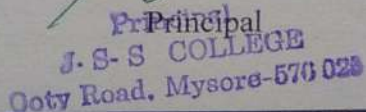 Principal
Principal
J. S- S COLLEGE
Ooty Road, Mysore-570 025